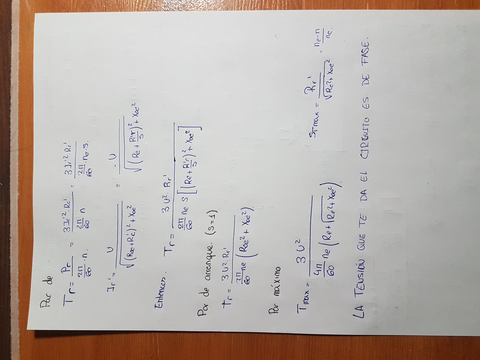 Par de
Tr = Pr / (2π/60 · n) = 3 Ir'² Rr' / (2π/60 n) = 3 Ir'² Rr' / (2π/60 ne·s)
Ir' = U / √((Rcc+Rc')² + Xcc²) = U / √((Re + Rr'/s)² + Xcc²)
Entonces
Tr = 3 U² Rr' / (2π/60 ne s [(Re + Rr'/s)² + Xcc²])
Par de arranque (s=1)
tr = 3 U² Rr' / (2π/60 ne (Rcc² + Xcc²))
Par máximo
Tmax = 3 U² / (4π/60 ne (Re + √(Re² + Xcc²))) sTmax = Rr' / √(Re² + Xcc²) = ne-n / ne
LA TENSIÓN QUE TE DA EL CIRCUITO ES DE FASE.